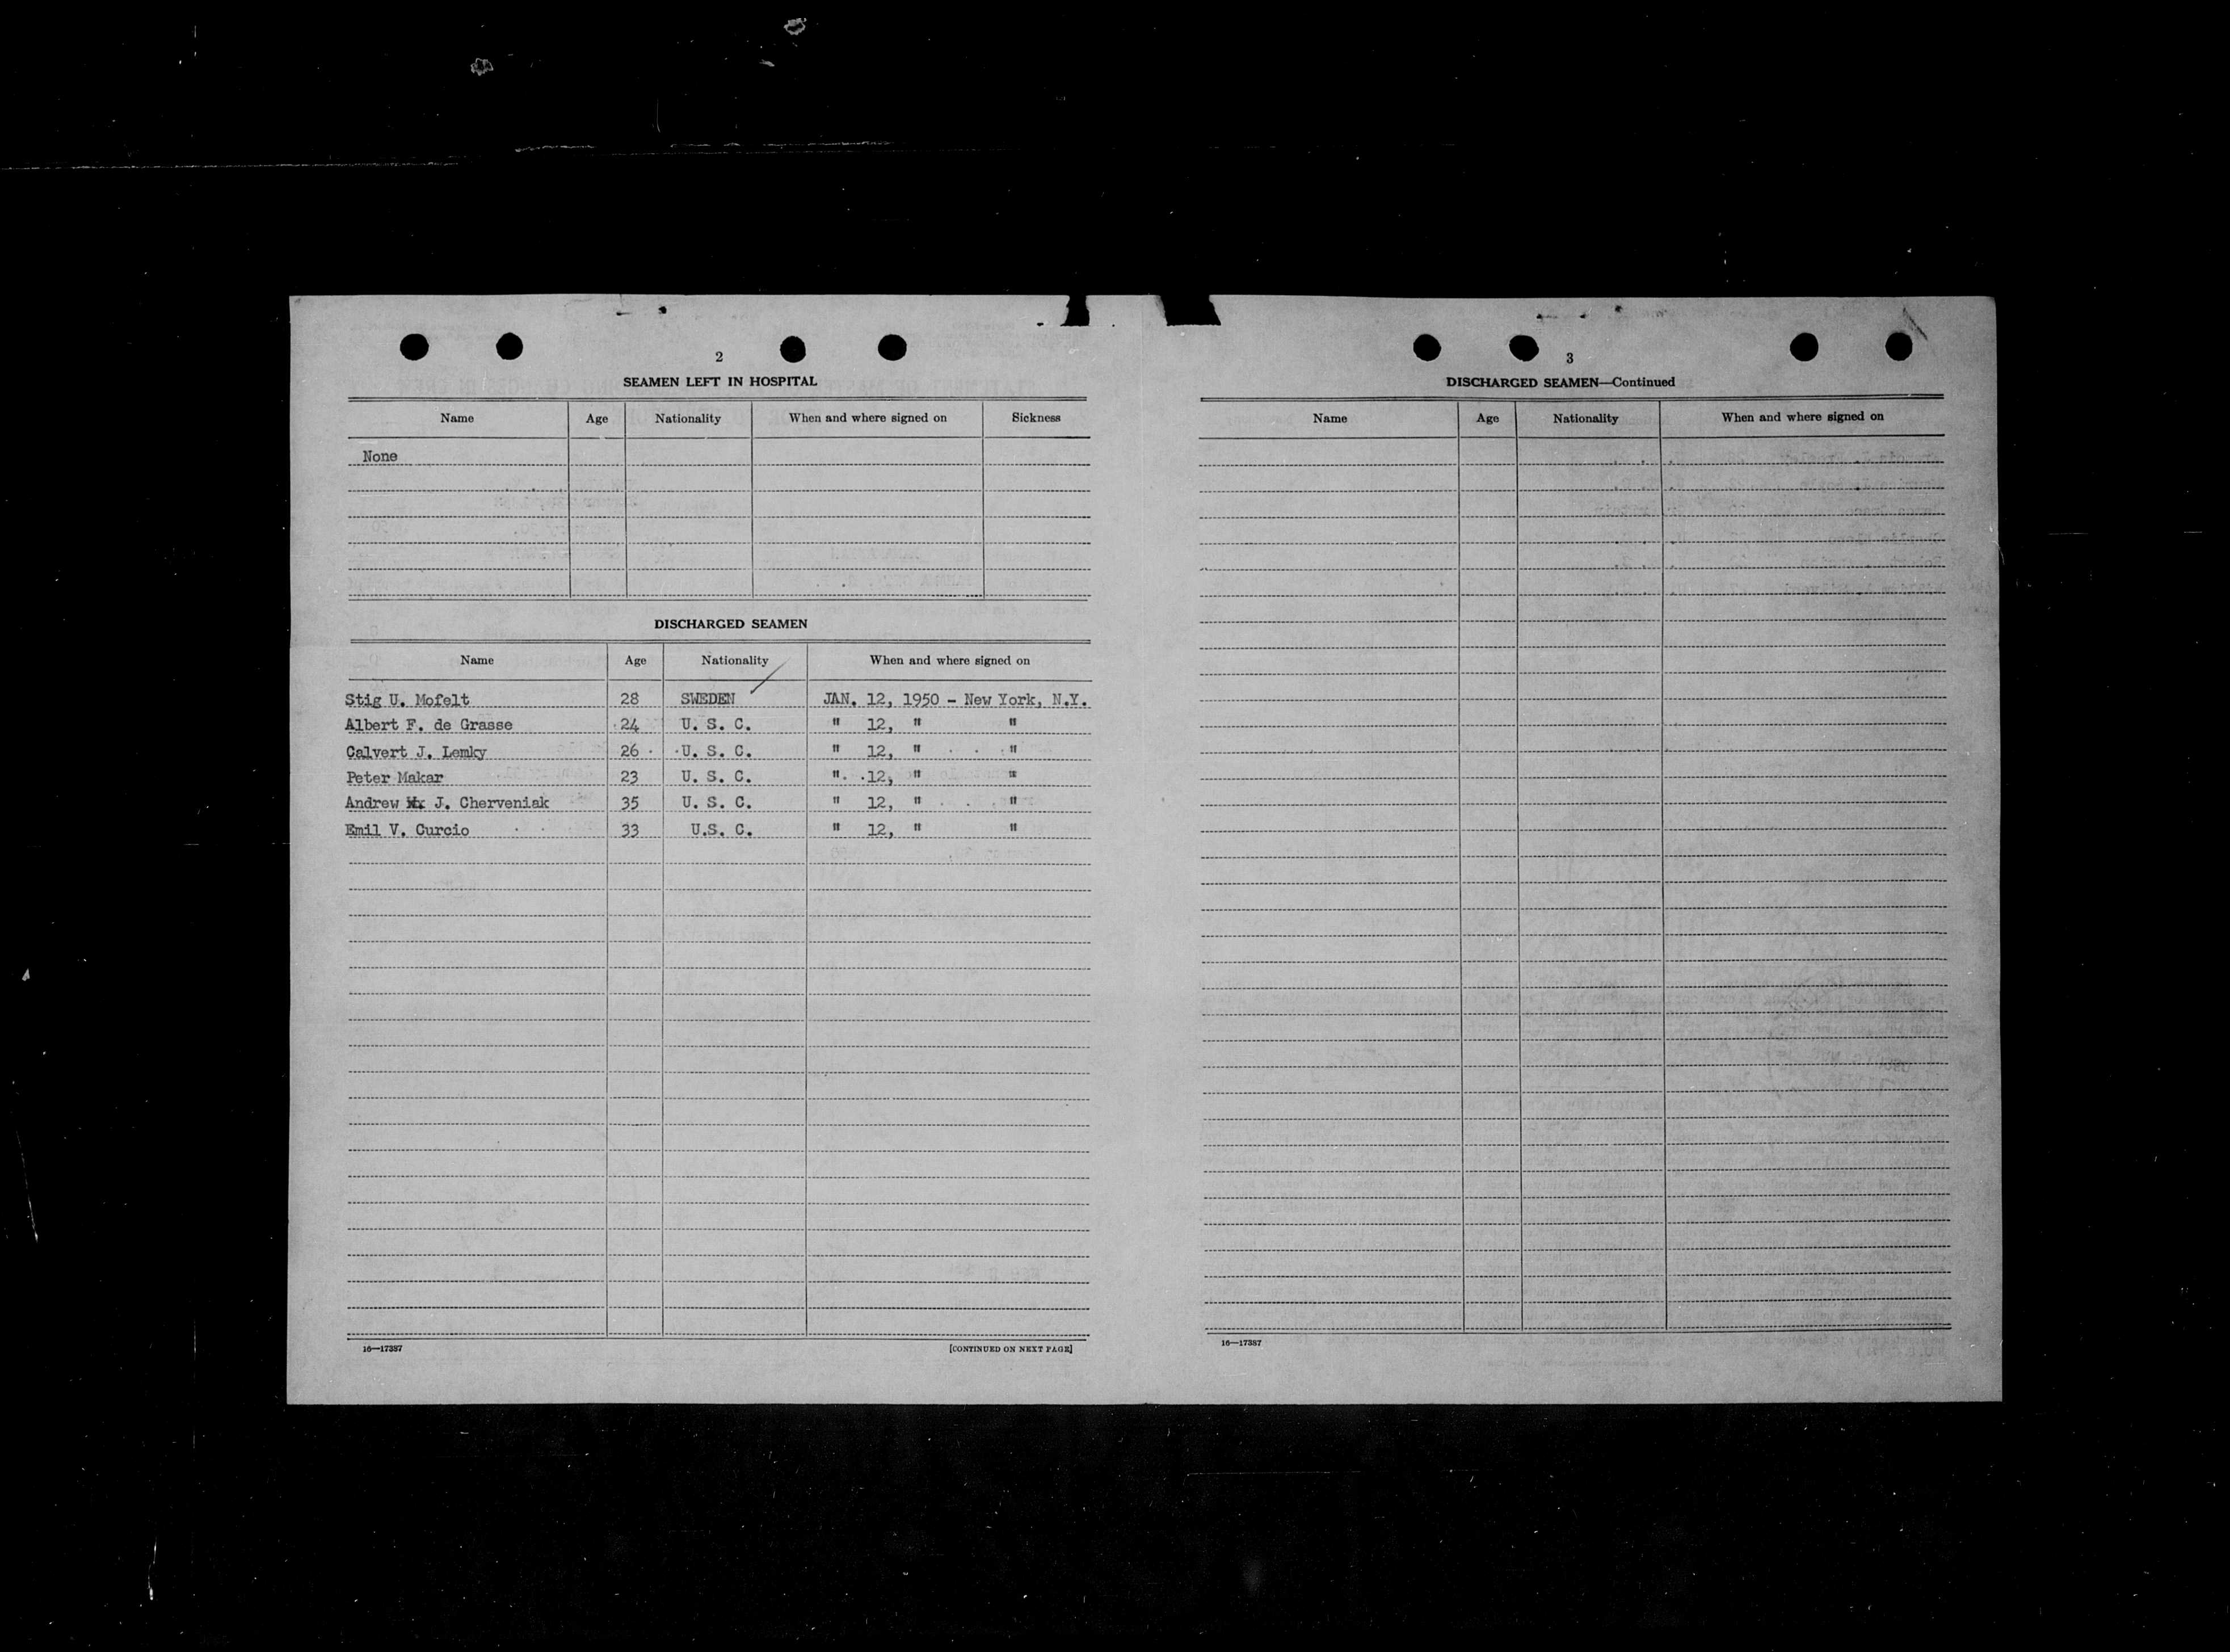 2
SEAMEN LEFT IN HOSPITAL
Name Age Nationality When and where signed on Sickness
None
DISCHARGED SEAMEN
Name Age Nationality When and where signed on
Stig U. Mofelt 28 SWEDEN JAN. 12, 1950 - New York, N.Y.
Albert F. de Grasse 24 U. S. C. " 12, " "
Calvert J. Lemky 26 U. S. C. " 12, " "
Peter Makar 23 U. S. C. " 12, " "
Andrew J. Cherveniak 35 U. S. C. " 12, " "
Emil V. Curcio 33 U.S. C. " 12, " "
16—17387 [CONTINUED ON NEXT PAGE]
3
DISCHARGED SEAMEN—Continued
Name Age Nationality When and where signed on
16—17387